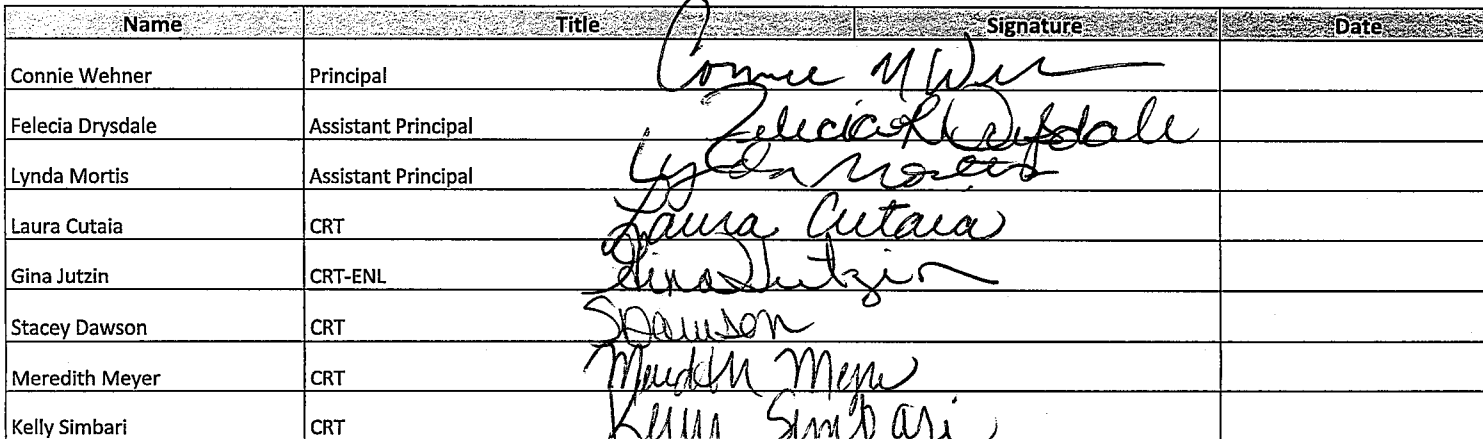 Name Title Signature Date
Connie Wehner Principal Connie M Weh
Felecia Drysdale Assistant Principal Felecia R Drysdale
Lynda Mortis Assistant Principal Lynda Mortis
Laura Cutaia CRT Laura Cutaia
Gina Jutzin CRT-ENL Gina Jutzin
Stacey Dawson CRT SDawson
Meredith Meyer CRT Meredith Meyer
Kelly Simbari CRT Kelly Simbari